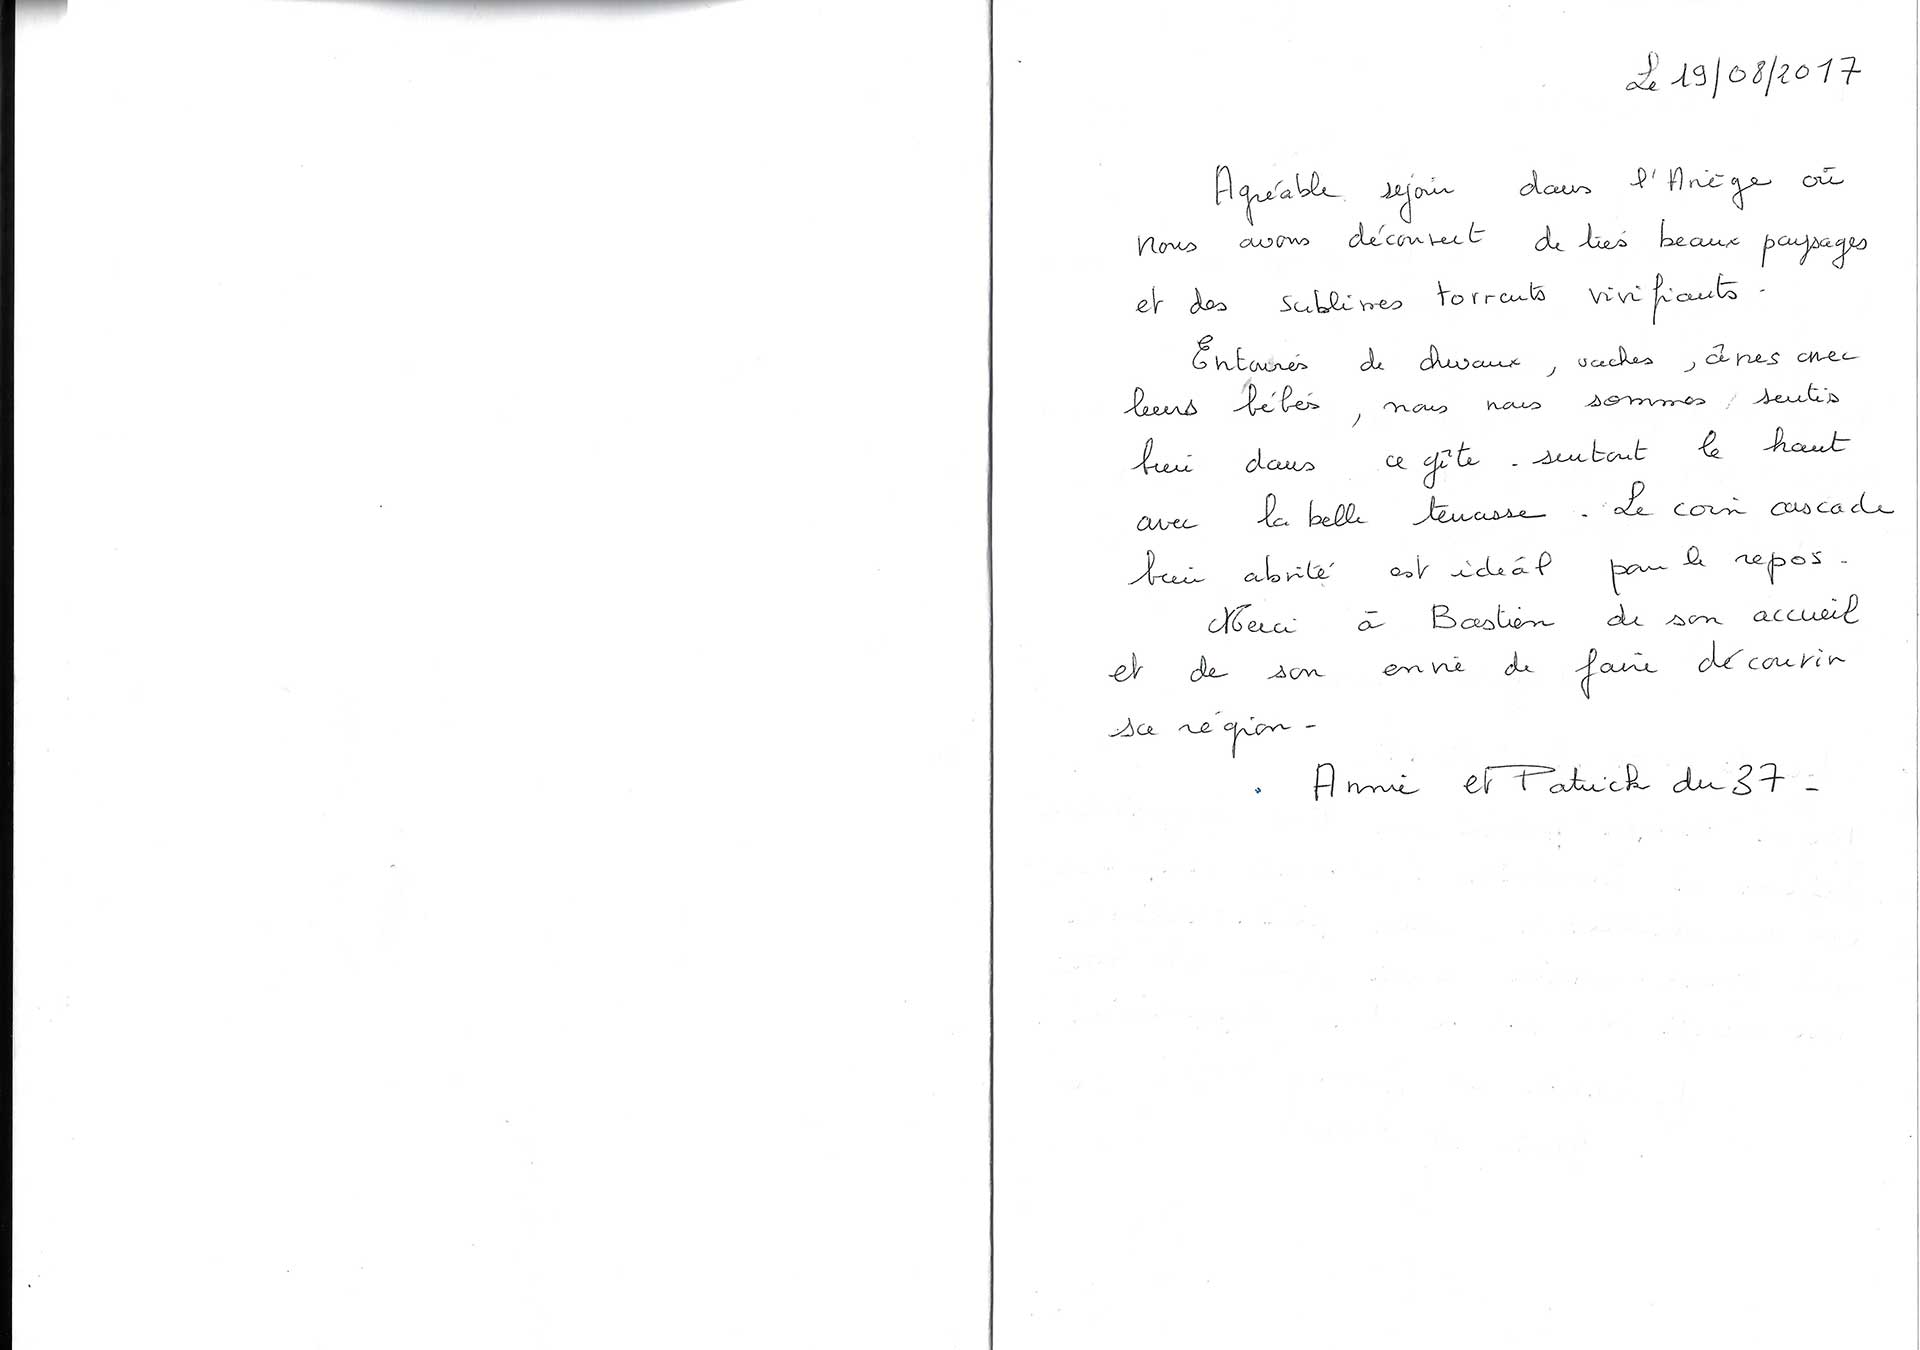 Le 19/08/2017
Agréable sejour dans l'Ariège où
nous avons découvert de très beaux paysages
et des sublimes torrents vivifiants.
Entourés de chevaux, vaches, ânes avec
leurs bébés, nous nous sommes sentis
bien dans ce gîte. surtout le haut
avec la belle terrasse. Le coin cascade
bien abrité est idéal pour le repos.
Merci à Bastien de son accueil
et de son envie de faire découvrir
sa région -
Annie et Patrick du 37 -